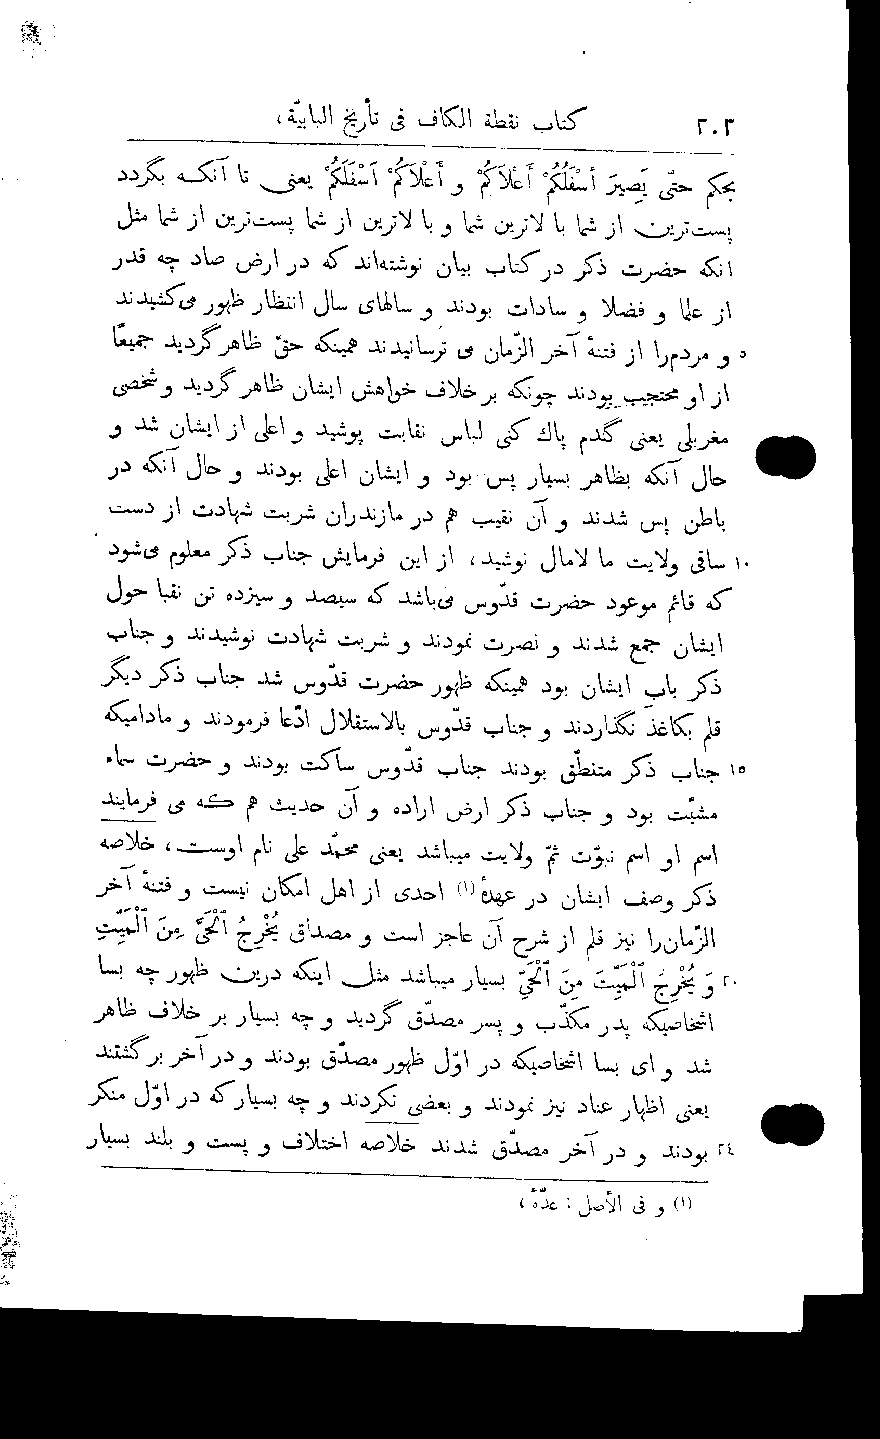 ۲۰۲ کتاب نقطة الکاف فی تأریخ البابیّة،
بحکم حتّی یَصِیرَ أَسْفَلُکُمْ أَعْلَاکُمْ و أَعْلَاکُمْ أَسْفَلَکُمْ یعنی تا آنکه بگردد
پست‌ترین از شما با لاترین شما و با لاترین از شما پست‌ترین از شما مثل
انکه حضرت ذکر در کتاب بیان نوشته‌اند که در ارض صاد چه قدر
از علما و فضلا و سادات بودند و سالهای سال انتظار ظهور می‌کشیدند
۵ و مردم‌را از فتنهٔ آخر الزّمان می ترسانیدند همینکه حقّ ظاهر گردید جمیعاً
از او محتجب بودند چونکه بر خلاف خواهش ایشان ظاهر گردید و شخصی
مغربلی یعنی گندم پاك کنی لباس نقابت پوشید و اعلی از ایشان شد و
حال آنکه بظاهر بسیار پس بود و ایشان اعلی بودند و حال آنکه در
باطن پس شدند و آن نقیب هم در مازندران شربت شهادت از دست
۱۰ ساقی ولایت ما لامال نوشید، از این فرمایش جناب ذکر معلوم می‌شود
که قائم موعود حضرت قدّوس می‌باشد که سیصد و سیزده تن نقبا حول
ایشان جمع شدند و نصرت نمودند و شربت شهادت نوشیدند و جناب
ذکر باب ایشان بود همینکه ظهور حضرت قدّوس شد جناب ذکر دیگر
قلم بکاغذ نگذاردند و جناب قدّوس بالاستقلال ادّعا فرمودند و مادامیکه
۱۵ جناب ذکر متنطّق بودند جناب قدّوس ساکت بودند و حضرت سماء
مشیّت بود و جناب ذکر ارض اراده و آن حدیث هم که می فرمایند
اسم او اسم نبوّت ثمّ ولایت میباشد یعنی محمّد علی نام اوست، خلاصه
ذکر وصف ایشان در عهدهٔ (۱) احدی از اهل امکان نیست و فتنهٔ آخر
الزّمان‌را نیز قلم از شرح آن عاجز است و مصداق یُخْرِجُ ٱلْحَیَّ مِنَ ٱلْمَیِّتِ
۲۰ وَ یُخْرِجُ ٱلْمَیِّتَ مِنَ ٱلْحَیِّ بسیار میباشد مثل اینکه درین ظهور چه بسا
اشخاصیکه پدر مکذّب و پسر مصدّق گردید و چه بسیار بر خلاف ظاهر
شد و ای بسا اشخاصیکه در اوّل ظهور مصدّق بودند و در آخر بر گشتند
یعنی اظهار عناد نیز نمودند و بعضی نکردند و چه بسیار که در اوّل منکر
۲٤ بودند و در آخر مصدّق شدند خلاصه اختلاف و پست و بلند بسیار
(۱) و فی الأصل: عدّهٔ،